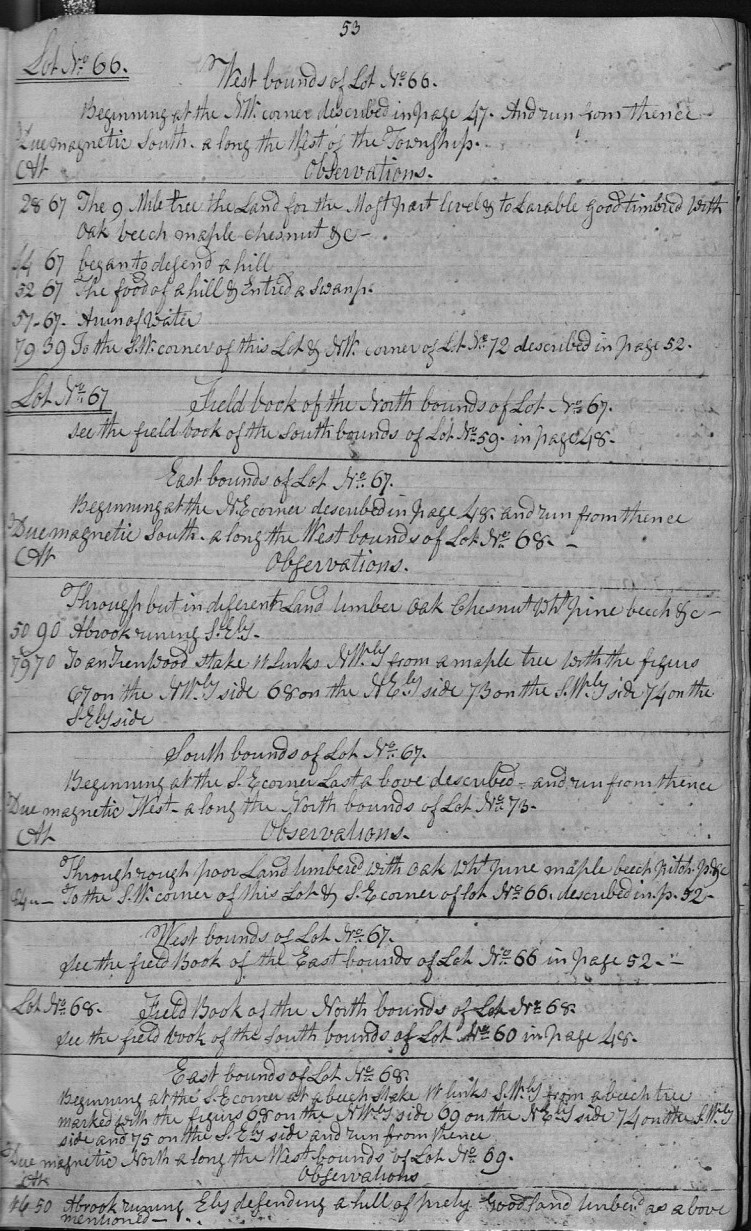 53
Lot No. 66.
West bounds of Lot No. 66.
Beginning at the N.W. corner described in page 47. And run from thence
Due magnetic South - a long the West of the Township.
At Observations.
28 67 The 9 Mile tree the Land for the Most part level & to Larable good timbred with
oak beech maple chesnut &c -
44 67 began to desend a hill
52 67 The food of a hill & Entred a Swanp.
57 - 67 - A run of water
79 39 To the S.W. corner of this Lot & N.W. corner of Lot No. 72 described in page 52.
Lot No. 67 Field book of the North bounds of Lot No. 67.
see the field book of the South bounds of Lot No. 59. in page 48.
East bounds of Lot No. 67.
Beginning at the N.E corner described in page 48. and run from thence
Due magnetic South - a long the West bounds of Lot No. 68. -
At Observations.
Through but in diferent Land timber oak Chesnut Wht pine beech &c -
50 90 A brook runing S.Ely.
79 70 To an Iron Wood Stake 11 Links N.Wly from a maple tree with the figurs
67 on the N.Wly side 68 on the N.Ely side 73 on the S.Wly side 74 on the
S.Ely side
South bounds of Lot No. 67.
Beginning at the S.E corner Last a bove described - and run from thence
Due magnetic West - a long the North bounds of Lot No. 73.
At Observations.
Through rough poor Land timbered with oak Wht pine maple beech pitch &c
To the S.W. corner of this Lot & S.E corner of lot No. 66. described in p. 52 -
West bounds of Lot No. 67.
see the field Book of the East bounds of Lot No. 66 in page 52. -
Lot No. 68. Field Book of the North bounds of Lot No. 68.
see the field book of the South bounds of Lot No. 60 in page 48.
East bounds of Lot No. 68.
Beginning at the S.E corner at a beech stake 11 links S.Wly from a beech tree
marked with the figurs 68 on the N.Wly side 69 on the N.Ely side 74 on the S.Wly
side and 75 on the S.Ely side and run from thence
Due magnetic North a long the West bounds of Lot No. 69.
At Observations
16 50 A brook runing Ely desending a hill of prety Good land timberd as above
mentioned -